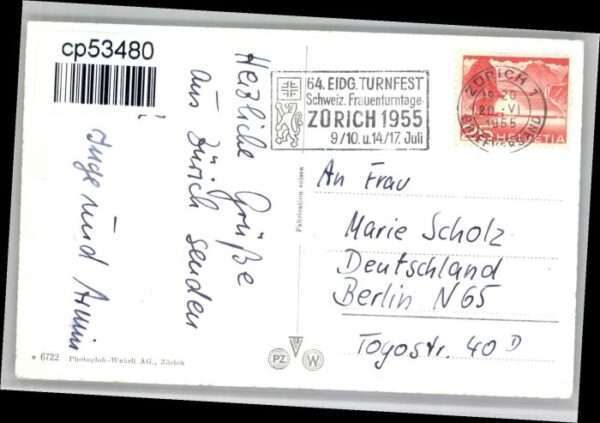 cp53480
Herzliche Grüße
aus Zürich senden
Inge und Armin
64. EIDG. TURNFEST
Schweiz. Frauenturntage
ZÜRICH 1955
9/10. u. 14/17. Juli
ZÜRICH 1
20. VI
1955
BRIEFVERSAND
HELVETIA
Fabrication suisse
An Frau
Marie Scholz
Deutschland
Berlin N65
Togostr. 40 D
6722 Photoglob-Wehrli AG., Zürich
PZ W